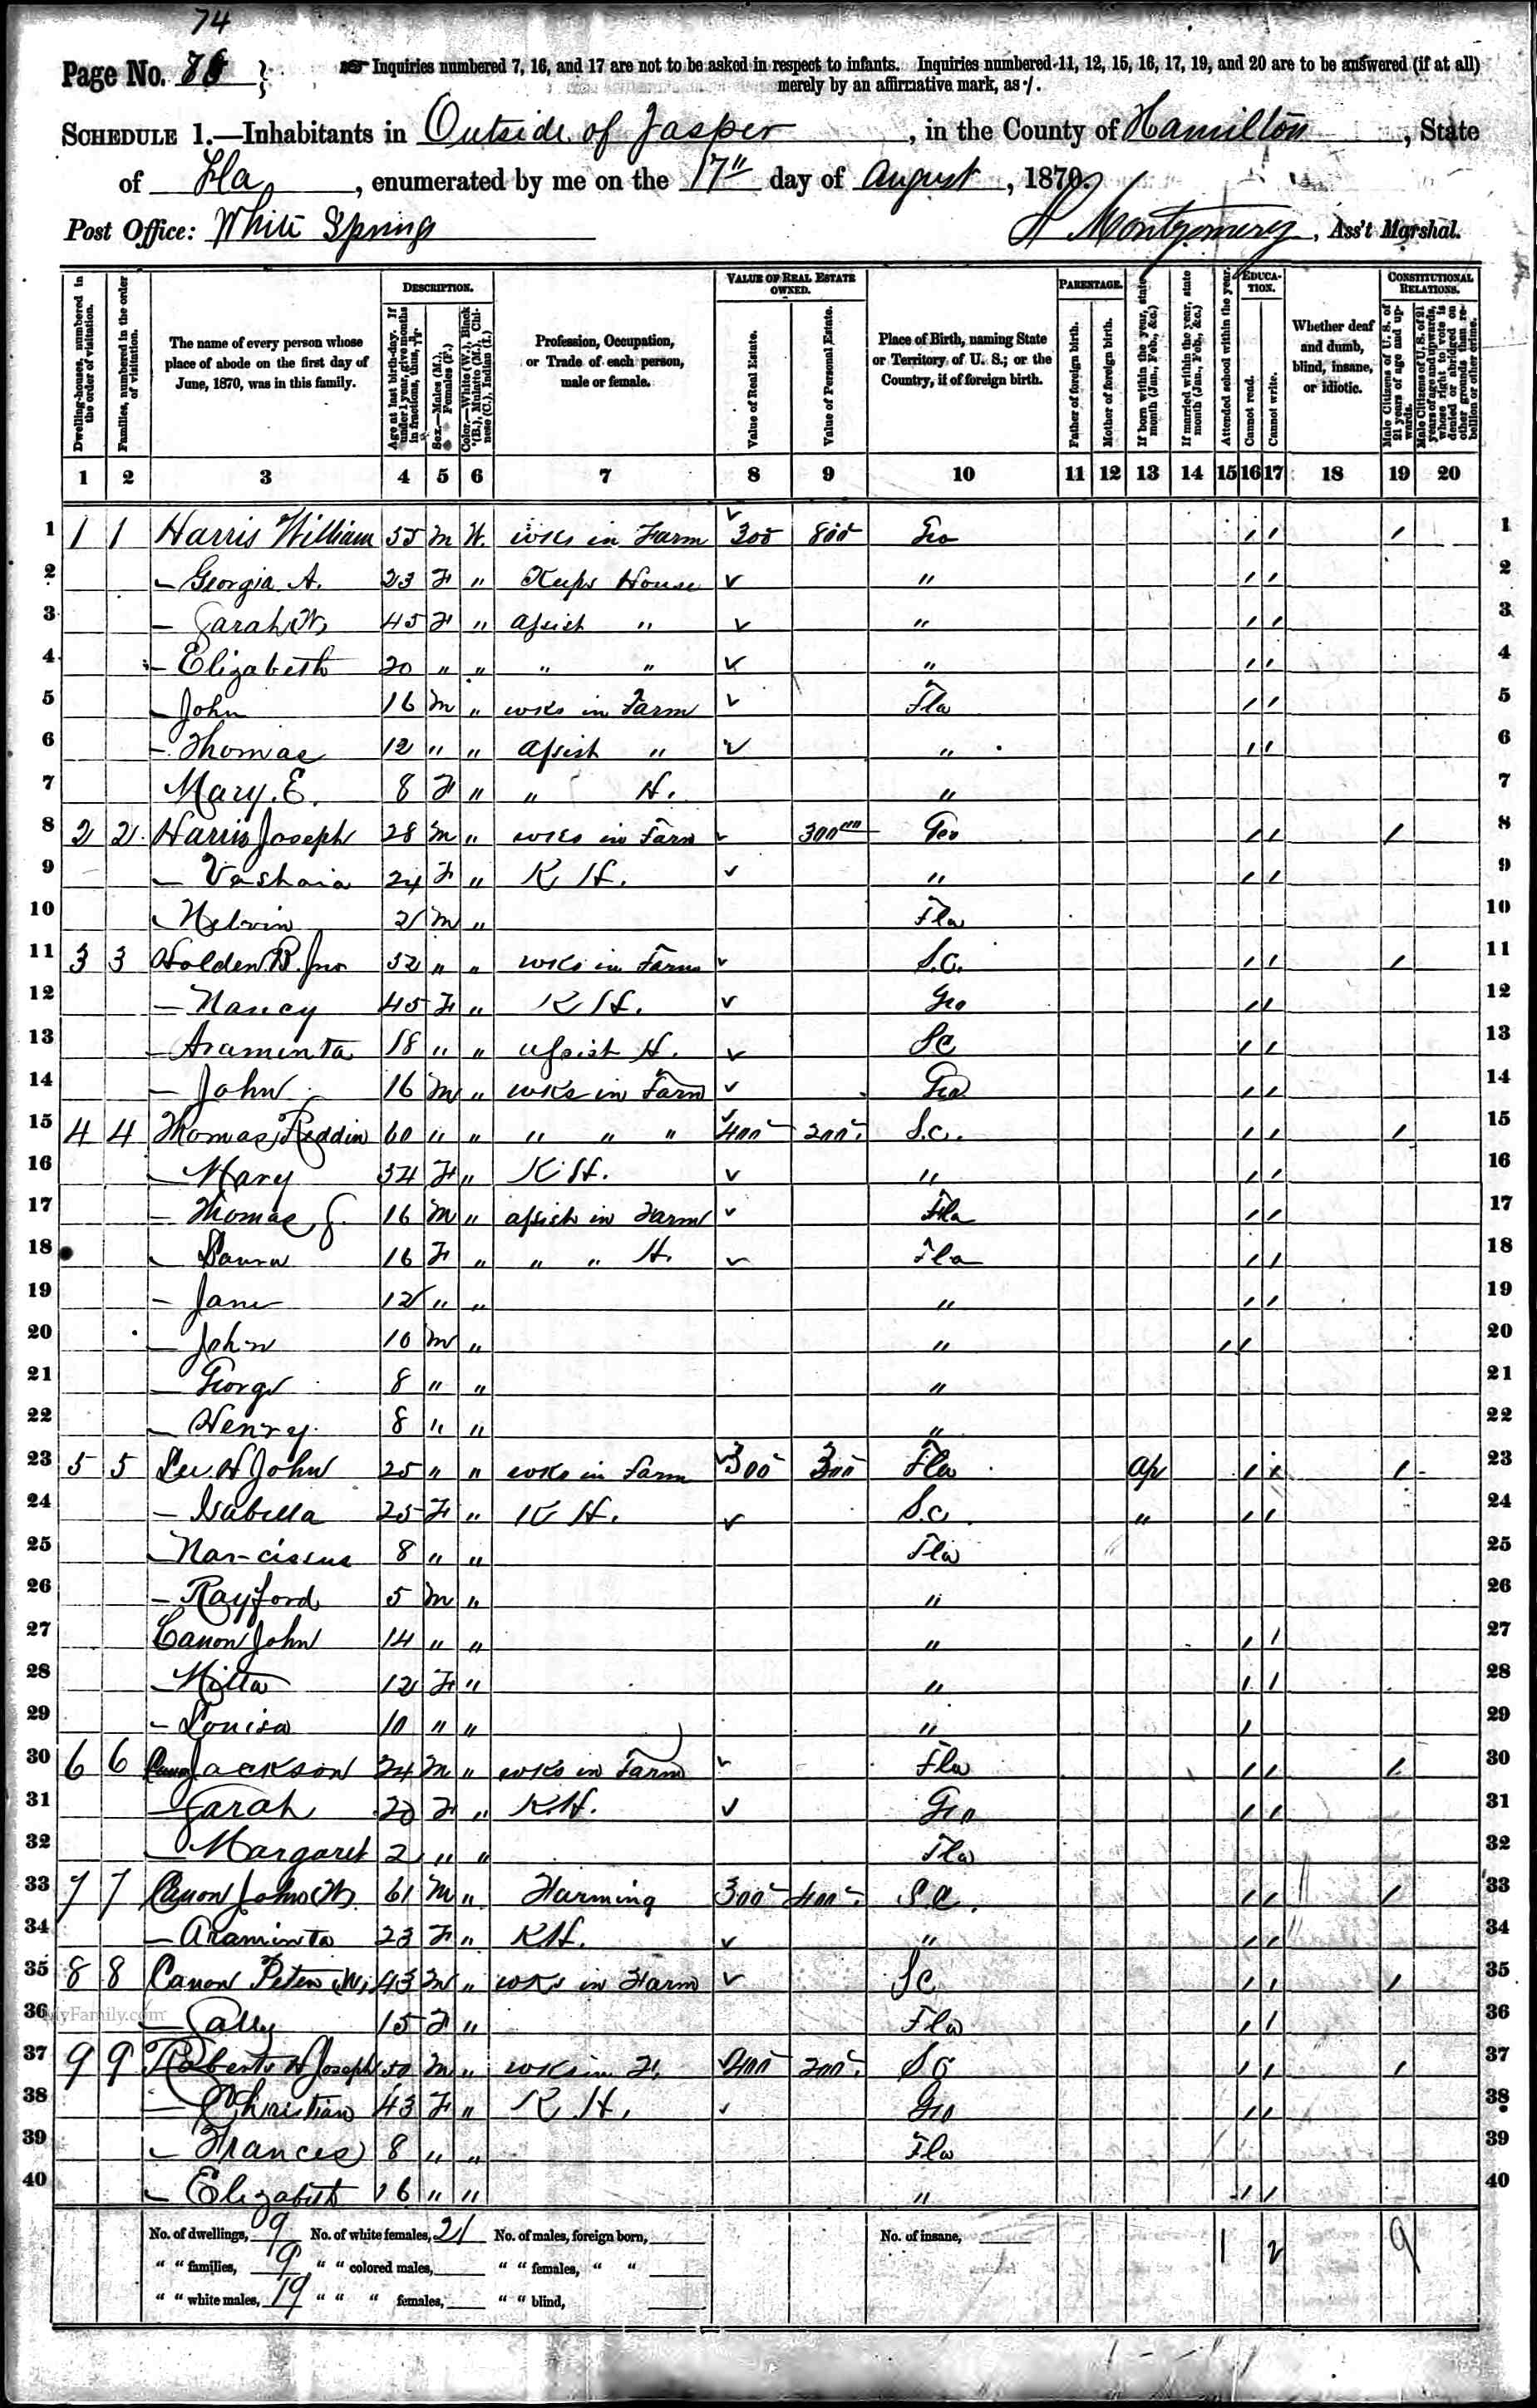 74
Page No. 78
Inquiries numbered 7, 16, and 17 are not to be asked in respect to infants. Inquiries numbered 11, 12, 15, 16, 17, 19, and 20 are to be answered (if at all)
merely by an affirmative mark, as /.
SCHEDULE 1.—Inhabitants in Outside of Jasper, in the County of Hamilton, State
of Fla, enumerated by me on the 17" day of August, 1870.
Post Office: White Springs Montgomery, Ass't Marshal.
DESCRIPTION. VALUE OF REAL ESTATE OWNED. PARENTAGE. EDUCATION. CONSTITUTIONAL RELATIONS.
Dwelling-houses, numbered in the order of visitation.
Families, numbered in the order of visitation.
The name of every person whose place of abode on the first day of June, 1870, was in this family.
Age at last birth-day. If under 1 year, give months in fractions, thus,
Sex.—Males (M.), Females (F.)
Color.—White (W.), Black (B.), Mulatto (M.), Chinese (C.), Indian (I.)
Profession, Occupation, or Trade of each person, male or female.
Value of Real Estate.
Value of Personal Estate.
Place of Birth, naming State or Territory of U. S.; or the Country, if of foreign birth.
Father of foreign birth.
Mother of foreign birth.
If born within the year, state month (Jan., Feb., &c.)
If married within the year, state month (Jan., Feb., &c.)
Attended school within the year.
Cannot read.
Cannot write.
Whether deaf and dumb, blind, insane, or idiotic.
Male Citizens of U. S. of 21 years of age and upwards.
Male Citizens of U. S. of 21 years of age and upwards, whose right to vote is denied or abridged on other grounds than rebellion or other crime.
1 2 3 4 5 6 7 8 9 10 11 12 13 14 15 16 17 18 19 20
1 1 1 Harris William 55 M W. wks in Farm 300 800 Geo / / / 1
2 – Georgia A. 23 F " Keeps House " / / 2
3 – Sarah W 45 F " Assist " " / / 3
4 – Elizabeth 20 " " " " " / / 4
5 – John 16 M " wks in Farm Fla / / 5
6 – Thomas 12 " " Assist " " / / 6
7 Mary E. 8 F " " H. " 7
8 2 2 Harris Joseph 28 M " wks in Farm 300 Geo / / / 8
9 – Vashaia 24 F " K H. " / / 9
10 – Melvin 2 M " Fla 10
11 3 3 Holden B. Jno 52 " " wks in Farm S.C. / / / 11
12 – Nancy 45 F " K H. Geo / / 12
13 – Araminta 18 " " Assist H. SC / / 13
14 – John 16 M " wks in Farm Geo / / 14
15 4 4 Thomas Reddin 60 " " " " " 400 200 S.C. / / / 15
16 – Mary 34 F " K H. " / / 16
17 – Thomas J. 16 M " Assist in Farm Fla / / 17
18 – Laura 16 F " " " H. Fla / / 18
19 – Jane 12 " " " / / 19
20 – John 10 M " " / / 20
21 – George 8 " " " 21
22 – Henry 8 " " " 22
23 5 5 Lee H John 25 " " wks in Farm 300 300 Fla Ap / / / 23
24 – Isabella 25 F " K H. S.C. " / / 24
25 – Narcissus 8 " " Fla 25
26 – Rayford 5 M " " 26
27 Canon John 14 " " " / / 27
28 – Mitta 12 F " " / / 28
29 – Louisa 10 " " " / 29
30 6 6 Canon Jackson 24 M " wks in Farm Fla / / / 30
31 – Sarah 20 F " K.H. Geo / / 31
32 – Margaret 2 " " Fla 32
33 7 7 Canon John W. 61 M " Farming 300 400 S.C. / / / 33
34 – Araminta 23 F " KH. " / / 34
35 8 8 Canon Peter W. 43 M " wks in Farm SC / / / 35
36 – Sally 15 F " Fla / / 36
MyFamily.com
37 9 9 Roberts H Joseph 50 M " wks in F. 400 200 SC / / / 37
38 – Christian 43 F " K. H. Geo / / 38
39 – Frances 8 " " Fla 39
40 – Elizabeth 16 " " " / / 40
No. of dwellings, 9 No. of white females, 21 No. of males, foreign born, No. of insane, 1 2 9
" " families, 9 " " colored males, " " females, " "
" " white males, 19 " " " females, " " blind,